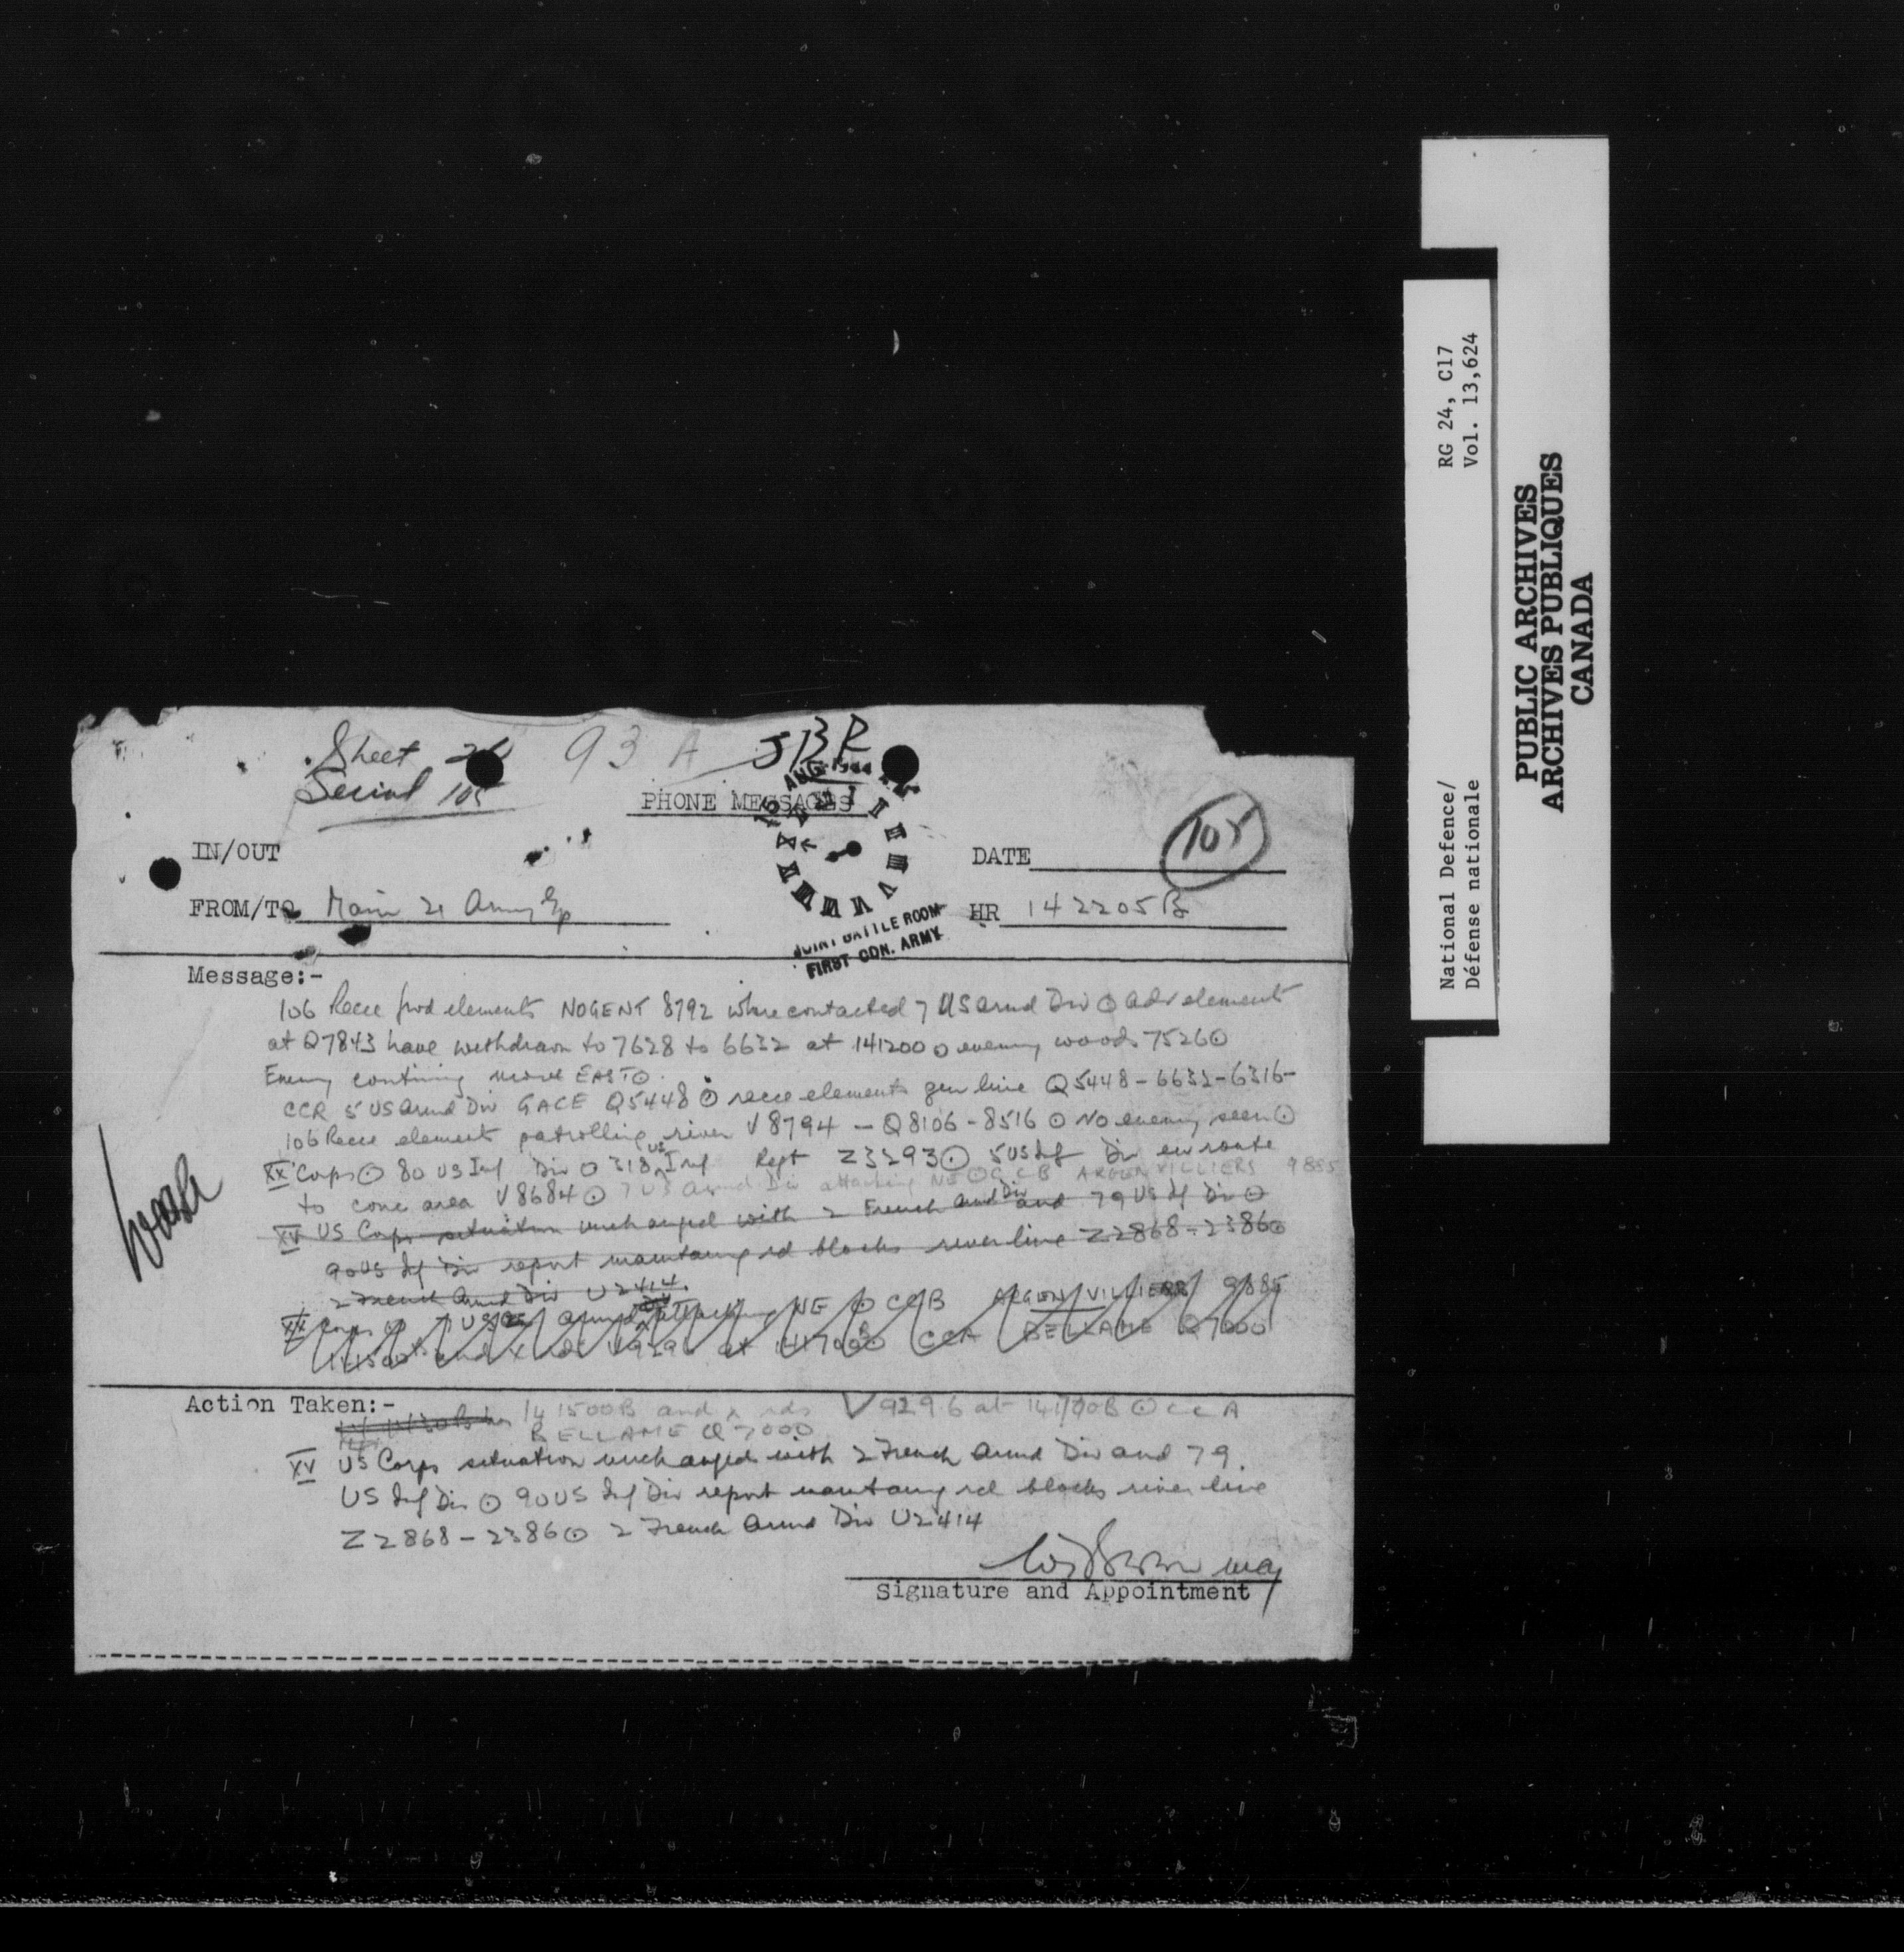 Sheet
Serial 105
93 A
JBR
PHONE MESSAGES
AUG 1944
JOINT BATTLE ROOM
FIRST CDN. ARMY
105
IN/OUT
DATE
FROM/TO Main 21 Army Gp
HR 142205B
Message:-
106 Recce fwd elements NOGENT 8792 where contacted 7 US armd Div ⊙ adv element
at Q7843 have withdrawn to 7628 to 6632 at 141200 ⊙ enemy woods 7526⊙
Enemy move EAST⊙
CCR 5 US armd Div GACE Q5448 ⊙ recce elements gen line Q5448-6632-6316-
106 Recce element patrolling river V8794 - Q8106-8516 ⊙ No enemy seen⊙
XX Corps ⊙ 80 US Inf Div ⊙ 318 US Inf Regt Z3293⊙ 5 US Inf Div en route
to conc area V8684⊙ 7 US Armd Div attacking NE ⊙ CCB ARGENVILLIERS 9885
XV US Corps situation unchanged with 2 French armd Div and 79 US Inf Div ⊙
90 US Inf Div report rd blocks river line Z2868-2386⊙
2 French Armd Div U2414.
XX Corps ⊙ 7 US armd Div attacking NE ⊙ CCB ARGENVILLIERS 9885
at 141700B⊙ CCA BELLAME Q7000
Action Taken:-
141500B and x rds V9296 at 141700B ⊙ CCA
BELLAME Q7000
XV US Corps situation unchanged with 2 French Armd Div and 79
US Inf Div ⊙ 90 US Inf Div report rd blocks river line
Z2868-2386⊙ 2 French Armd Div U2414
maj
Signature and Appointment
National Defence/
Défense nationale
RG 24, C17
Vol. 13,624
PUBLIC ARCHIVES
ARCHIVES PUBLIQUES
CANADA